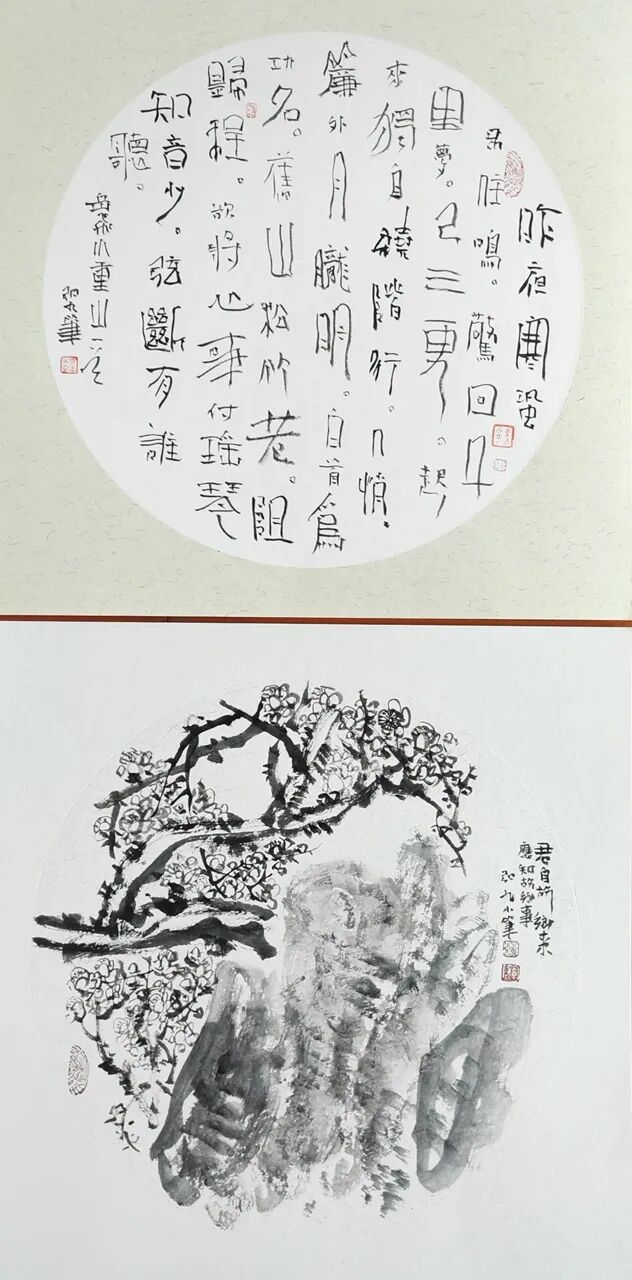 昨夜寒蛩
不住鳴。驚回千
里夢。已三更。起
來獨自繞階行。人悄。
簾外月朧明。白首爲
功名。舊山松竹老。阻
歸程。欲將心事付瑶琴
知音少。弦斷有誰
聽。
岳飛小重山
筆
君自故鄉來
應知故鄉事
小筆